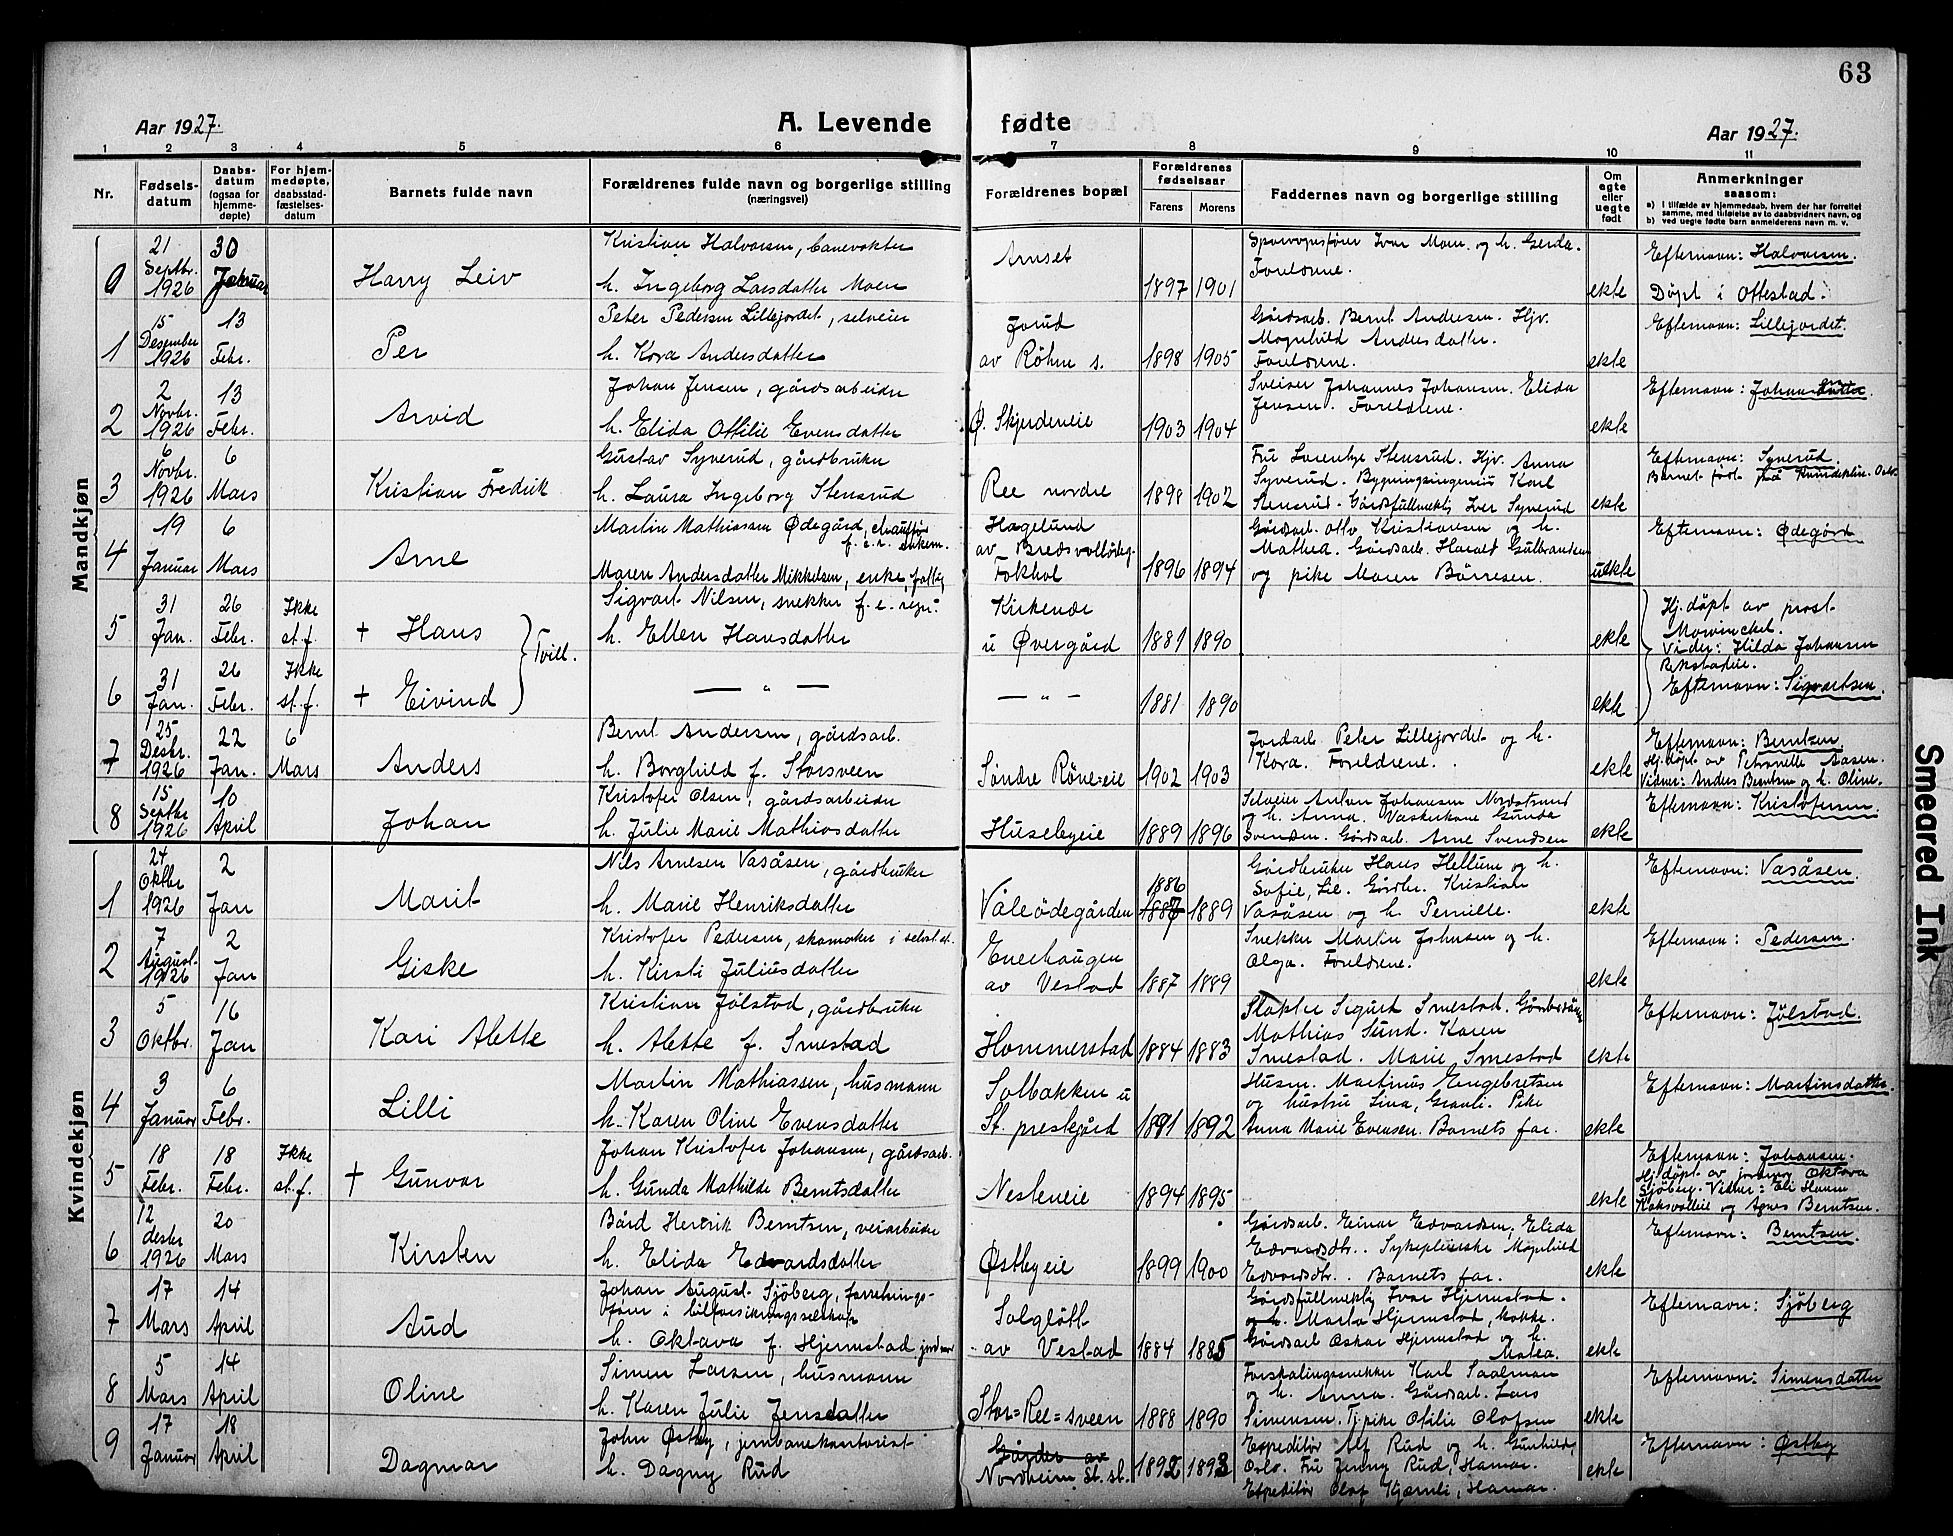 63
Aar 1927.
A. Levende fødte
Aar 1927.
1 2 3 4 5 6 7 8 9 10 11
Nr.
Fødsels-
datum
Daabs-
datum
(ogsaa for
hjemme-
døpte)
For hjem-
medøpte,
daabsstad-
fæstelses-
datum
Barnets fulde navn
Forældrenes fulde navn og borgerlige stilling
(næringsvei)
Forældrenes bopæl
Forældrenes
fødselsaar
Farens Morens
Faddernes navn og borgerlige stilling
Om
egte
eller
uegte
født
Anmerkninger
saasom:
a) I tilfælde av hjemmedaab, hvem der har forrettet
samme, med tilføielse av to daabsvidners navn, og
b) ved uegte fødte barn anmelderens navn m. v.
Mandkjøn
0
21
Septbr.
1926
30
Januar
Harry Leiv
Kristian Halvorsen, banevokter
h. Ingeborg Larsdatter Moen
Arnset
1897 1901
Foreldrene.
ekte
Efternavn: Halvorsen.
Døpt i Ottestad.
1
15
Desember
1926
13
Febr.
Per
Peter Pedersen Lillejordet, selveier
h. Kora Andersdatter
Jorud
av Röhne s.
1898 1905
Gårdsarb. Bernt Andersen. Hjv.
Magnhild Andersdatter.
Foreldrene.
ekte
Efternavn: Lillejordet.
2
2
Novbr.
1926
13
Febr.
Arvid
Johan Jensen, gårdsarbeider
h. Elida Otilie Evensdatter
Ø. Skjerdeneie
1903 1904
Sveiser Johannes Johansen. Elida
Jensen. Foreldrene.
ekte
Efternavn: Johansen.
3
6
Novbr.
1926
6
Mars
Kristian Fredrik
Gustav Syverud, gårdbruker
h. Laura Ingeborg Stensrud
Ree nordre
1898 1902
Fru Lorentze Stensrud. Hjv. Anna
Syverud. Bygningsingeniör Karl
Stensrud. Gårdsfullmektig Iver Syverud
ekte
Efternavn: Syverud.
Barnet født på Kvindeklin. Oslo.
4
19
Januar
6
Mars
Arne
Martin Mathiassen Ødegård, chauffør
f. e. r. enkem.
Maren Andersdatter Mikkelsen, enke, fattig
Hagelund
av Bredsvollødeg.
Fokhol
1896 1894
Gårdsarb. Otto Kristiansen og h.
Mathea. Gårdsarb. Harald Gulbrandsen
og pike Maren Börresen.
uekte
Efternavn: Ødegård
5
31
Jan.
26
Febr.
Ikke
st. f.
+ Hans
Tvill.
Sigvart Nilsen, snekker f. e. repr.
h. Ellen Hansdatter
Kirkenær
u Øvergård
1881 1890
ekte
Hj.døpt av prost
Morvinckel.
Vidner: Hilda Johansen
Rekstadeie.
6
31
Jan.
26
Febr.
Ikke
st. f.
+ Eivind
— „ —
— „ —
1881 1890
ekte
Efternavn: Sigvartsen.
7
25
Desbr.
1926
22
Jan.
6
Mars
Anders
Bernt Andersen, gårdsarb.
h. Borghild f. Storsveen
Söndre Röne=eie
1902 1903
Jordarb. Peter Lillejordet og h.
Kora. Foreldrene.
ekte
Efternavn: Berntsen
Hj.døpt av Petronelle Aasen.
Vidner: Anders Berntsen og h. Oline.
8
15
Septbr
1926
10
April
Johan
Kristofer Olsen, gårdsarbeider
h. Julie Marie Mathiasdatter
Husebyeie
1889 1896
Selveier Anton Johansen Nordstrand
og h. Anna. Vaskerkone Gunda
Svendsen. Gårdsarb. Arne Svendsen
ekte
Efternavn: Kristofersen
Kvindekjøn
1
24
Oktbr
1926
2
Jan
Marit
Nils Arnesen Vasåsen, gårdbruker
h. Marie Henriksdatter
Våleödegården
1886
1887 1889
Gårdbruker Hans Hellum og h.
Sofie, Lie. Gårdbr. Kristian
Vasåsen og h. Pernille.
ekte
Efternavn: Vasåsen.
2
7
August
1926
2
Jan
Giske
Kristofer Pedersen, skomaker i selvst. st.
h. Kirsti Juliusdatter
Enerhaugen
av Vestad
1887 1889
Snekker Martin Johnsen og h.
Olga. Foreldrene.
ekte
Efternavn: Pedersen.
3
5
Oktbr.
16
Jan
Kari Alette
Kristian Jölstad, gårdbruker
h. Alette f. Smestad
Hommerstad
1884 1883
Slakter Sigurd Smestad.
Mathias Sund. Karen
Smestad. Marie Smestad
ekte
Efternavn: Jølstad.
4
3
Januar
6
Febr.
Lilli
Martin Mathiassen, husmann
h. Karen Oline Evensdatter
Solbakken u
St. prestegård
1891 1892
Husm. Martinus Engebretsen
og hustru Lina, Gravli. Pike
Anna Marie Evensen. Barnets far.
ekte
Efternavn: Martinsdatter.
5
18
Febr.
18
Febr.
Ikke
st. f.
+ Gunvor
Johan Kristofer Johansen, gårdsarb.
h. Gunda Mathilde Berntsdatter
Nesteneie
1894 1895
ekte
Efternavn: Johansen.
Hj.döpt av jordmor Oktava
Sjöberg. Vidner: Eli Hansen
Koksvolleie og Agnes Berntsen.
6
12
desbr
1926
20
Mars
Kirsten
Bård Henrik Berntsen, veiarbeider
h. Elida Edvardsdatter
Østbyeie
1899 1900
Gårdsarb. Einar Edvardsen, Elida
Edvardsdtr. Sykepleierske Magnhild
Edvardsdtr. Barnets far.
ekte
Efternavn: Berntsen.
7
17
Mars
14
April
Aud
Johan August Sjöberg, forretnings-
förer i bilforsikringsselskap
h. Oktava f. Hjermstad jordmor
Solglött
av Vestad
1884 1885
Gårdsfullmektig Ivar Hjermstad.
og h. Marta Hjermstad, kokke.
Gårdsarb Oskar Hjermstad og h.
Matea.
ekte
Efternavn: Sjöberg
8
5
Mars
14
April
Oline
Simen Larsen, husmann
h. Karen Julie Jensdatter
Stor=Ree=sveen
1888 1890
Forskalingssnekker Karl Saalman
og h. Anna. Gårdsarb. Lars
Simensen. Tj.pike Otilie Olafsen
ekte
Efternavn: Simensdatter
9
17
Januar
18
April
Dagmar
John Østby, jernbanekontorist
h. Dagny Rud
Gården av
Nordheim St. st.
1892 1893
Expeditör Alf Rud og h. Gunhild,
Oslo. Fru Jenny Rud, Hamar.
Expeditör Olaf Kjærnli, Hamar.
ekte
Efternavn: Østby
Smeared Ink